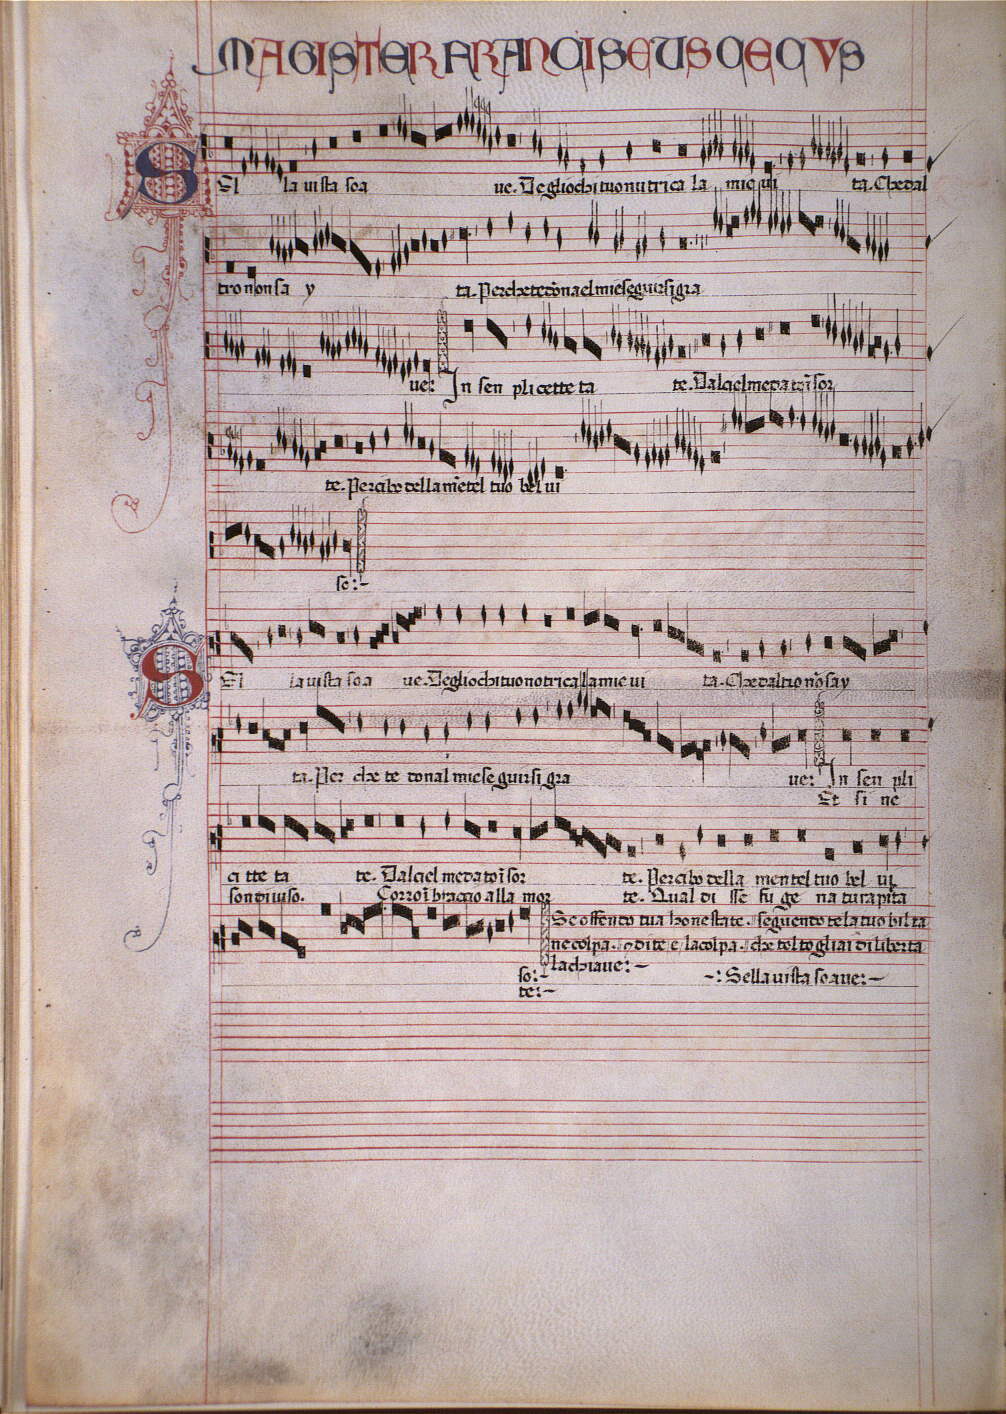 MAGISTER FRANCISCUS CECVS
SEl la uista soa ue. De gliochi tuo nutrica la mie ui ta. Che dal
tro non sa y ta. Perche te dōna el mie seguirsi gra
ue: In sen plicette ta te. Dal ciel me data ī sor
te. Per cibo della mētel tuo bel ui
so:-
SEl la uista soa ue. De gliochi tuo notrica lla mie ui ta. Che daltro nō sa y
ta. Per che te donal mie seguirsi gra ue: In sen pli
Et si ne
ci tte ta te. Dal ciel me data ī sor te. Per cibo della mentel tuo bel ui
son diuiso. Corro ī braccio alla mor te. Qual di sse fu ge natura pita
Se offendo tua honestate. seguendo te la tuo bilta
ne colpa. o di te e la colpa. che tol to gliai di liberta
so:- la chiaue:- -: Sella uista soaue:-
te:-